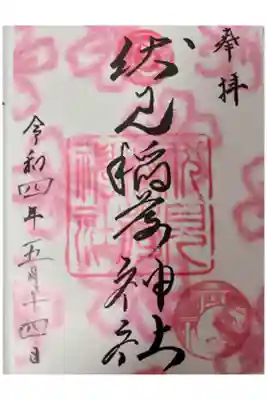 奉拝
伏見稲荷神社
令和四年五月十四日